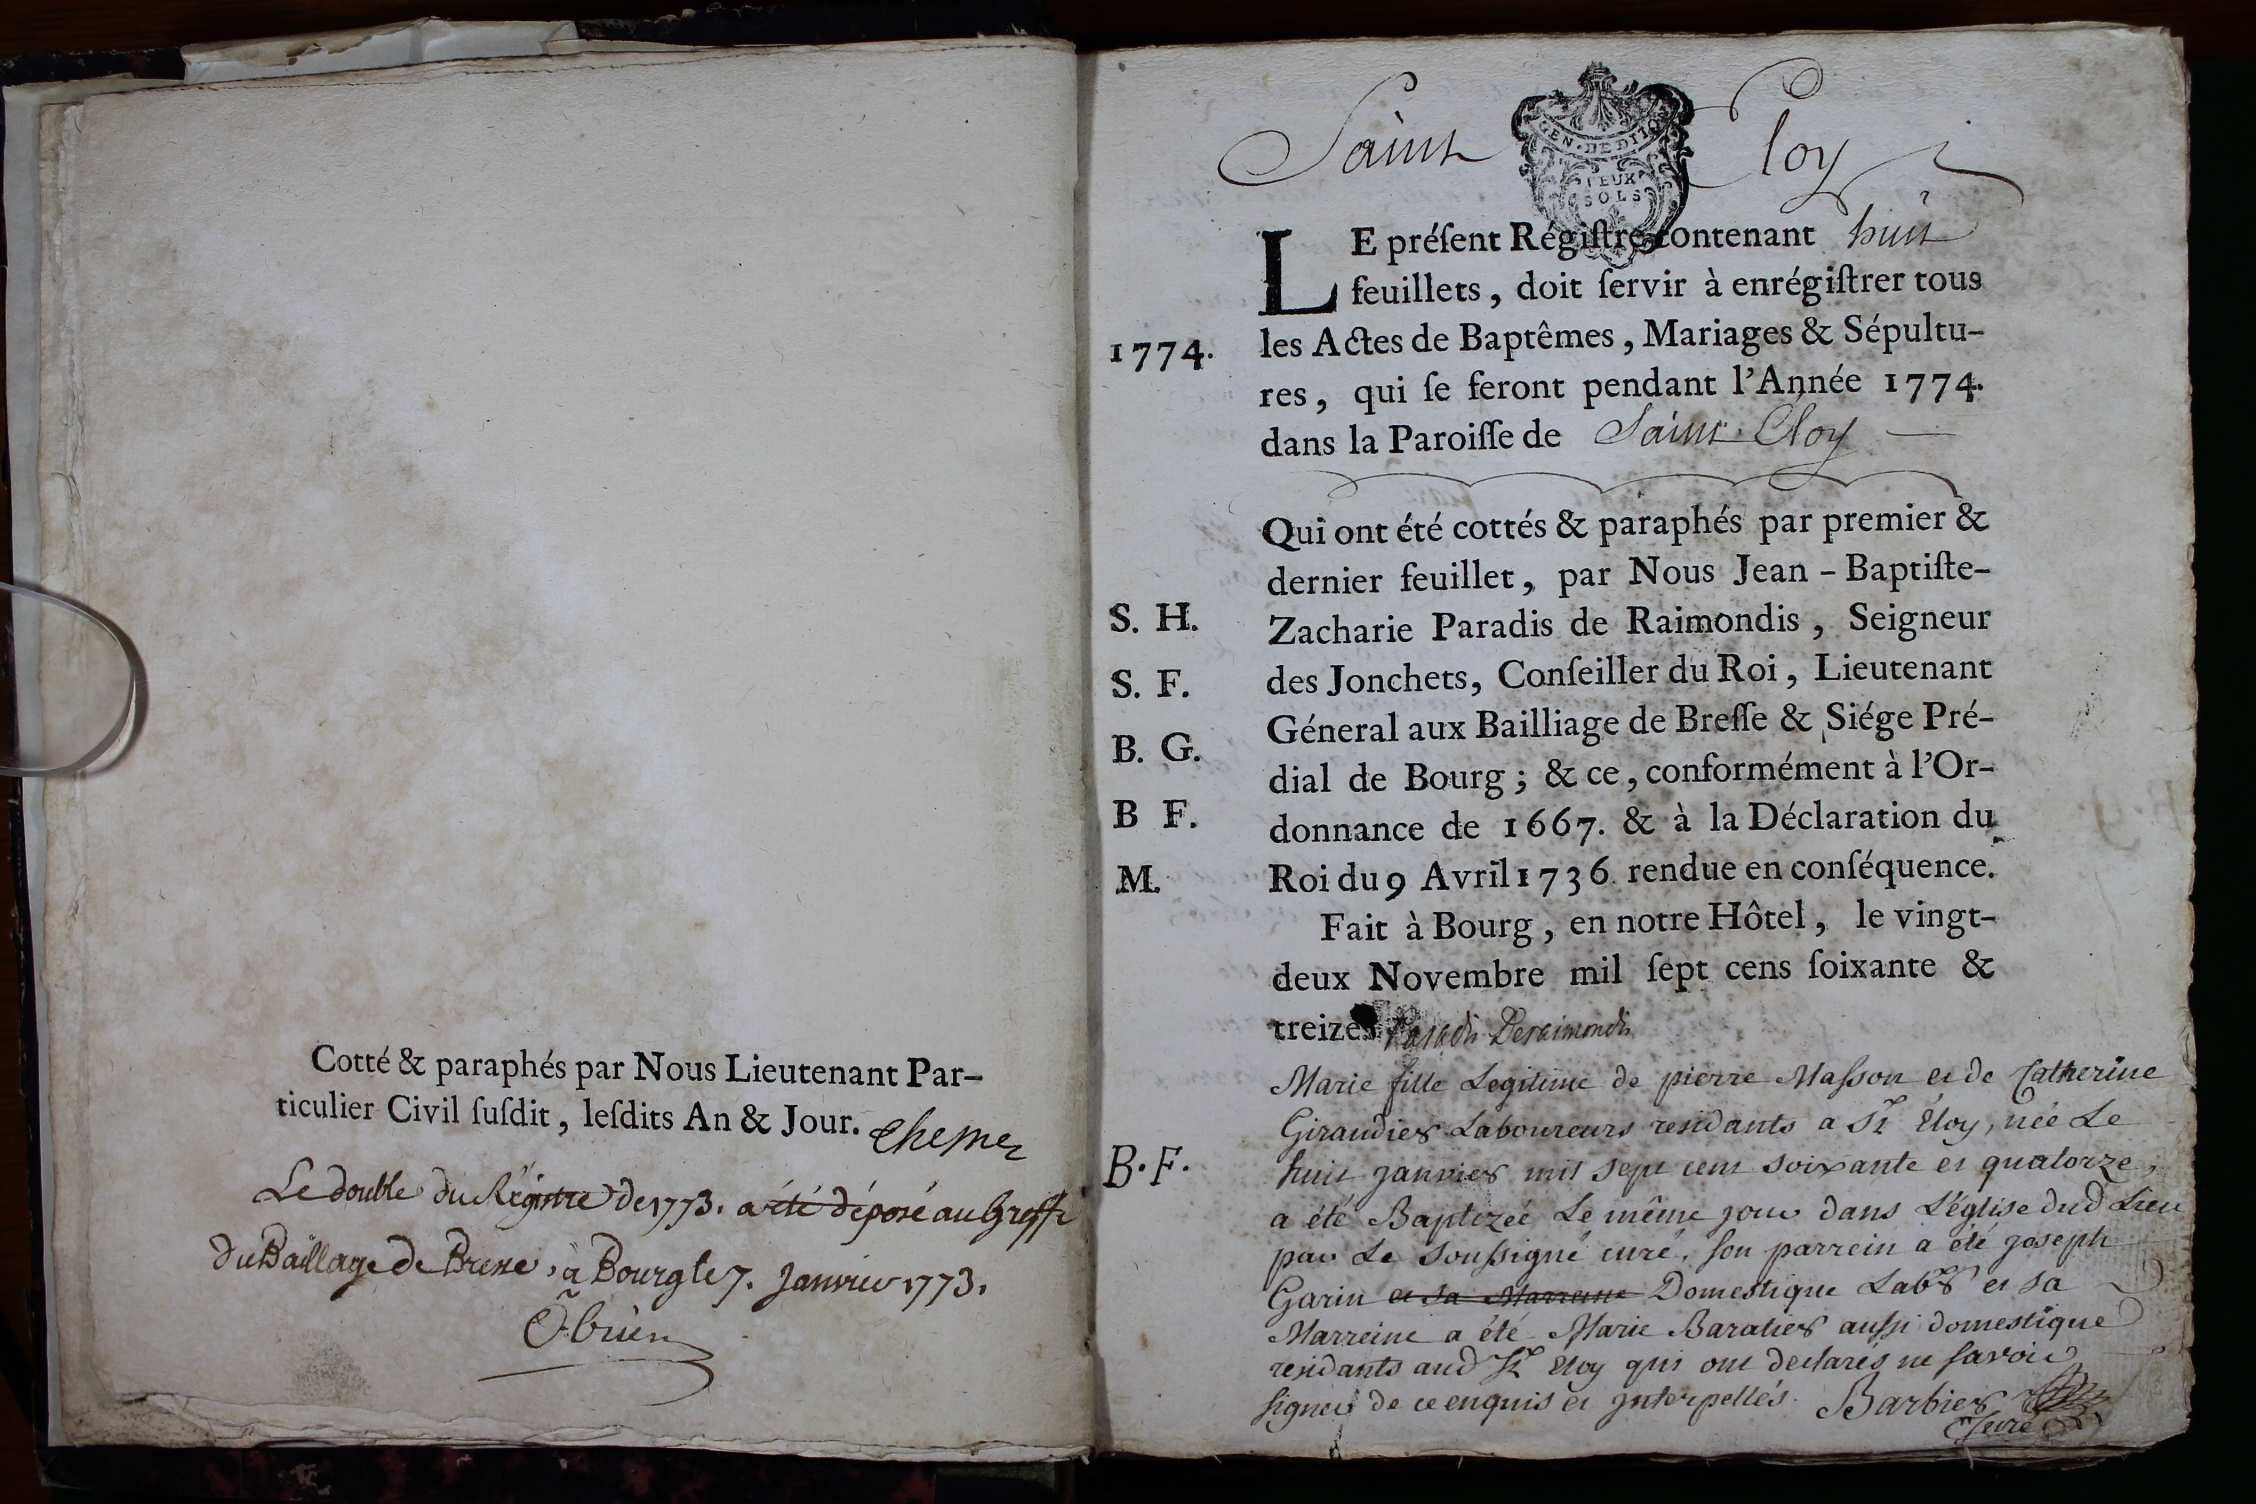 Cotté & paraphés par Nous Lieutenant Par-
ticulier Civil ſuſdit, leſdits An & Jour.
Le double du Régistre de 1773. a été déposé au Greffe
du Baillage de Bresse, à Bourg le 7. Janvier 1773.
Saint Eloy
GEN. DE DIJON
DEUX
SOLS
LE préſent Régiſtre contenant huit
feuillets, doit ſervir à enrégiſtrer tous
1774.
les Actes de Baptêmes, Mariages & Sépultu-
res, qui ſe feront pendant l'Année 1774.
dans la Paroiſſe de Saint Eloy
Qui ont été cottés & paraphés par premier &
dernier feuillet, par Nous Jean-Baptiſte-
S. H.
Zacharie Paradis de Raimondis, Seigneur
S. F.
des Jonchets, Conſeiller du Roi, Lieutenant
Géneral aux Bailliage de Breſſe & Siége Pré-
B. G.
dial de Bourg; & ce, conformément à l'Or-
B F.
donnance de 1667. & à la Déclaration du
M.
Roi du 9 Avril 1736. rendue en conſéquence.
Fait à Bourg, en notre Hôtel, le vingt-
deux Novembre mil ſept cens ſoixante &
treize. Paradis Deraimondis
Marie fille Legitime de pierre Masson et de Catherine
Giraudier Laboureurs residants a St Eloy, née Le
B. F.
huit janvier mil sept cent soixante et quatorze,
a été Baptezée Le même jour dans L'église dud Lieu
par Le soussigné curé, son parrein a été joseph
Garin et sa Marreine Domestique Labr et sa
Marreine a été Marie Baratier aussi domestique
residants aud St Eloy qui ont declarés ne savoir
signer de ce enquis et jnterpellés. Barbier
Curé